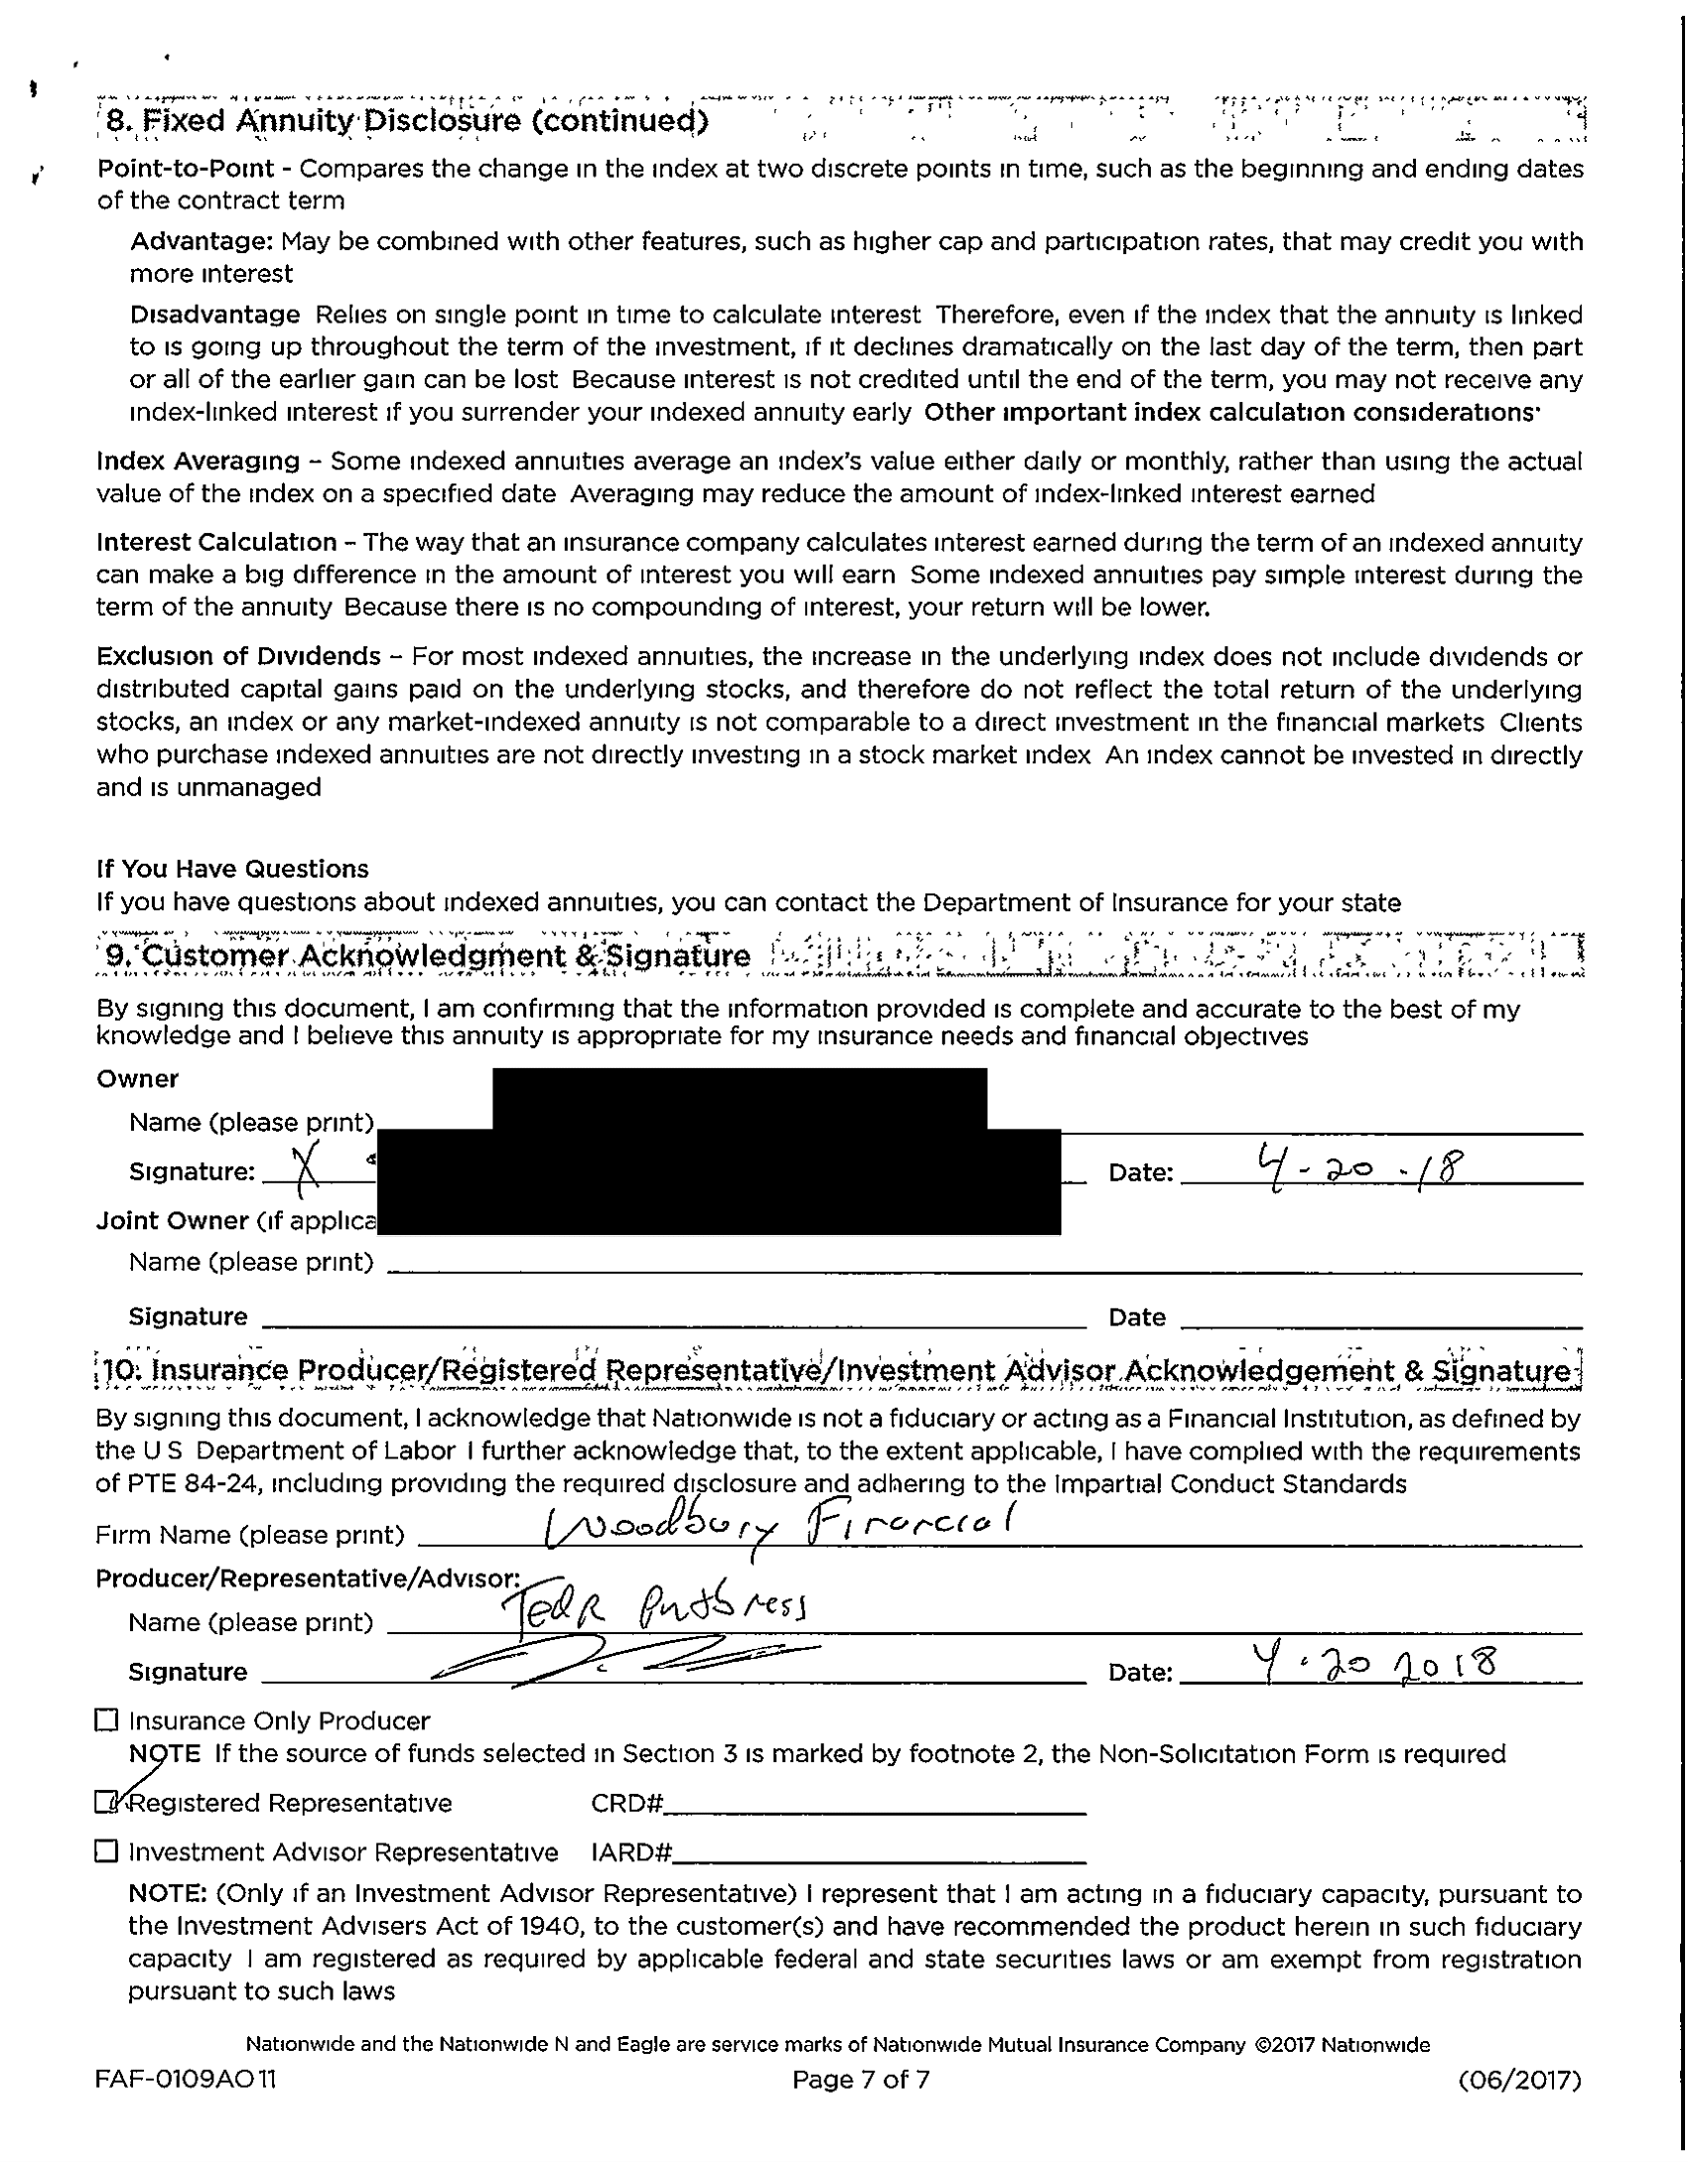 8. Fixed Annuity Disclosure (continued)
Point-to-Point - Compares the change in the index at two discrete points in time, such as the beginning and ending dates
of the contract term
Advantage: May be combined with other features, such as higher cap and participation rates, that may credit you with
more interest
Disadvantage Relies on single point in time to calculate interest Therefore, even if the index that the annuity is linked
to is going up throughout the term of the investment, if it declines dramatically on the last day of the term, then part
or all of the earlier gain can be lost Because interest is not credited until the end of the term, you may not receive any
index-linked interest if you surrender your indexed annuity early Other important index calculation considerations·
Index Averaging – Some indexed annuities average an index's value either daily or monthly, rather than using the actual
value of the index on a specified date Averaging may reduce the amount of index-linked interest earned
Interest Calculation – The way that an insurance company calculates interest earned during the term of an indexed annuity
can make a big difference in the amount of interest you will earn Some indexed annuities pay simple interest during the
term of the annuity Because there is no compounding of interest, your return will be lower.
Exclusion of Dividends – For most indexed annuities, the increase in the underlying index does not include dividends or
distributed capital gains paid on the underlying stocks, and therefore do not reflect the total return of the underlying
stocks, an index or any market-indexed annuity is not comparable to a direct investment in the financial markets Clients
who purchase indexed annuities are not directly investing in a stock market index An index cannot be invested in directly
and is unmanaged
If You Have Questions
If you have questions about indexed annuities, you can contact the Department of Insurance for your state
9. Customer Acknowledgment & Signature
By signing this document, I am confirming that the information provided is complete and accurate to the best of my
knowledge and I believe this annuity is appropriate for my insurance needs and financial objectives
Owner
Name (please print)
Signature: X Date: 4-20-18
Joint Owner (if applica
Name (please print)
Signature Date
10. Insurance Producer/Registered Representative/Investment Advisor Acknowledgement & Signature
By signing this document, I acknowledge that Nationwide is not a fiduciary or acting as a Financial Institution, as defined by
the U S Department of Labor I further acknowledge that, to the extent applicable, I have complied with the requirements
of PTE 84-24, including providing the required disclosure and adhering to the Impartial Conduct Standards
Firm Name (please print) Woodbury Financial
Producer/Representative/Advisor:
Name (please print) Ted R
Signature Date: 4·20 2018
Insurance Only Producer
NOTE If the source of funds selected in Section 3 is marked by footnote 2, the Non-Solicitation Form is required
Registered Representative CRD#
Investment Advisor Representative IARD#
NOTE: (Only if an Investment Advisor Representative) I represent that I am acting in a fiduciary capacity, pursuant to
the Investment Advisers Act of 1940, to the customer(s) and have recommended the product herein in such fiduciary
capacity I am registered as required by applicable federal and state securities laws or am exempt from registration
pursuant to such laws
Nationwide and the Nationwide N and Eagle are service marks of Nationwide Mutual Insurance Company ©2017 Nationwide
FAF-0109AO 11 Page 7 of 7 (06/2017)